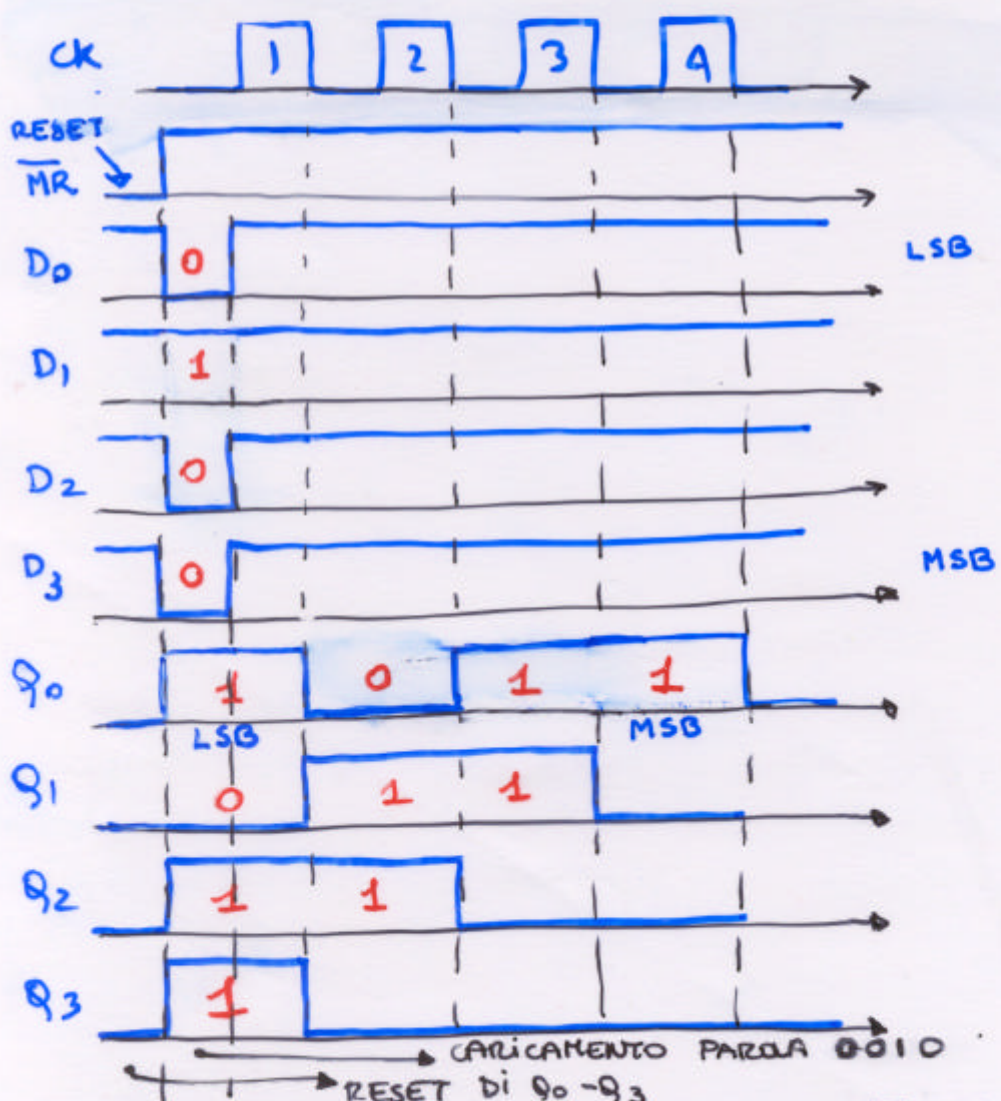 CK 1 2 3 4
RESET
M̅R̅
D0 0 LSB
D1 1
D2 0
D3 0 MSB
Q0 1 0 1 1
LSB MSB
Q1 0 1 1
Q2 1 1
Q3 1
CARICAMENTO PAROLA 0010
RESET Di Q0-Q3